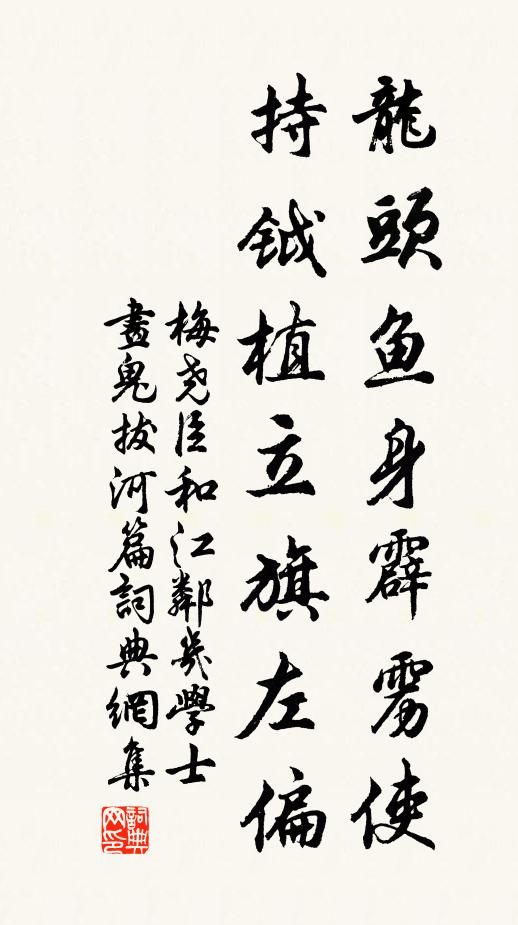 龍頭鱼身霹雳使
持鉞植立旗左偏
梅尧臣和江鄰幾學士
畫鬼拔河篇詞典網集
詞典网印